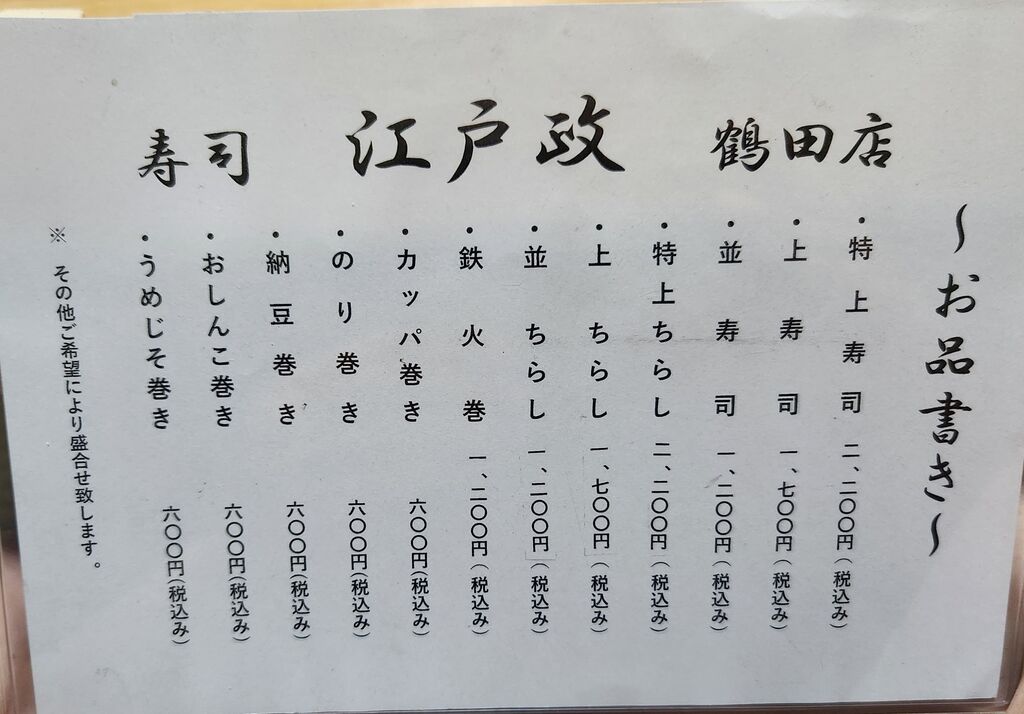 寿司 江戸政 鶴田店
～お品書き～
・特上寿司 二、二〇〇円(税込み)
・上寿司 一、七〇〇円(税込み)
・並寿司 一、二〇〇円(税込み)
・特上ちらし 二、二〇〇円(税込み)
・上ちらし 一、七〇〇円(税込み)
・並ちらし 一、二〇〇円(税込み)
・鉄火巻 一、二〇〇円(税込み)
・カッパ巻き 六〇〇円(税込み)
・のり巻き 六〇〇円(税込み)
・納豆巻き 六〇〇円(税込み)
・おしんこ巻き 六〇〇円(税込み)
・うめじそ巻き 六〇〇円(税込み)
※ その他ご希望により盛合せ致します。